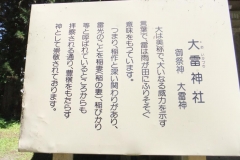 大雷神社
御祭神 大雷神
大は美称で、大いなる威力を示す
言葉で、雷は雨が田にふりそそぐ
意味をもっています。
つまり、稲作と深い関りがあり、
雷光のことを稲妻(稲の妻)、稲びかり
等と呼ばれているところからも
拝察される通り、豊穣をもたらす
神として崇敬されております。